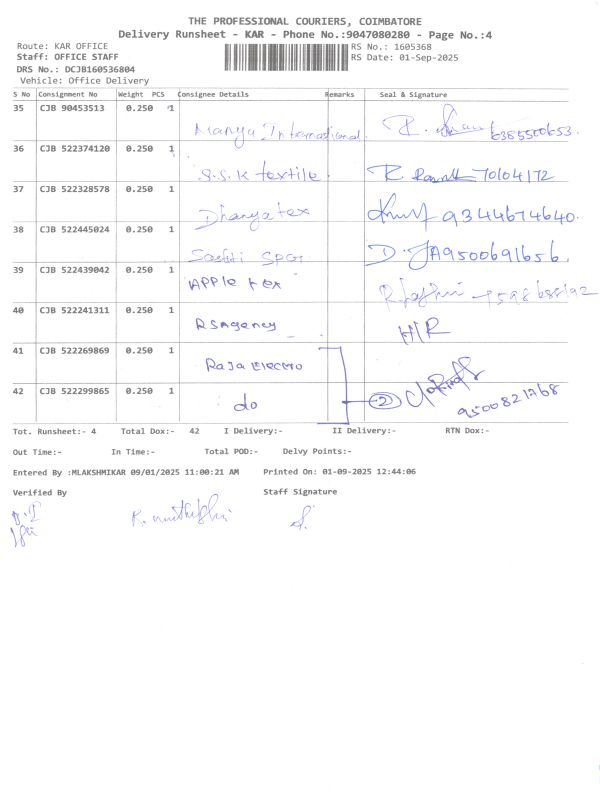 THE PROFESSIONAL COURIERS, COIMBATORE
Delivery Runsheet - KAR - Phone No.:9047080280 - Page No.:4
Route: KAR OFFICE
RS No.: 1605368
Staff: OFFICE STAFF
RS Date: 01-Sep-2025
DRS No.: DCJB160536804
Vehicle: Office Delivery
S No Consignment No Weight PCS Consignee Details Remarks Seal & Signature
35 CJB 90453513 0.250 1
Manya International 6385500653.
36 CJB 522374120 0.250 1
S.S.K textile R. 70104172
37 CJB 522328578 0.250 1
Dhanyatex 9344674640.
38 CJB 522445024 0.250 1
Sakthi SPG. D. 9500691656.
39 CJB 522439042 0.250 1
Apple tex
40 CJB 522241311 0.250 1
RSAgency H/R
41 CJB 522269869 0.250 1
Raja Electro
42 CJB 522299865 0.250 1
do 2 9500821768
Tot. Runsheet:- 4 Total Dox:- 42 I Delivery:- II Delivery:- RTN Dox:-
Out Time:- In Time:- Total POD:- Delvy Points:-
Entered By :MLAKSHMIKAR 09/01/2025 11:00:21 AM Printed On: 01-09-2025 12:44:06
Verified By Staff Signature